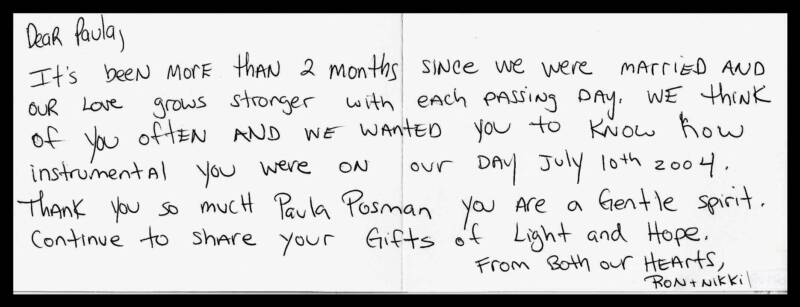 Dear Paula,
It's been more than 2 months since we were married and
our love grows stronger with each passing day. We think
of you often and we wanted you to know how
instrumental you were on our day July 10th 2004.
Thank you so much Paula Posman you are a gentle spirit.
Continue to share your gifts of Light and Hope.
From Both our Hearts,
Ron + Nikki